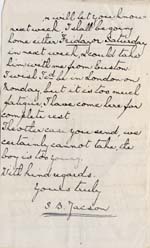 & will let you know
next week. I shall be going
home either Friday or Saturday
in next week, & could take
him with me from Euston.
I wish I'd be in London on
Monday but it is too much
fatigue I have come here for
complete rest.
The other case you send, we
certainly cannot take, the
boy is too young.
With kind regards.
Yours truly
S B Jacson